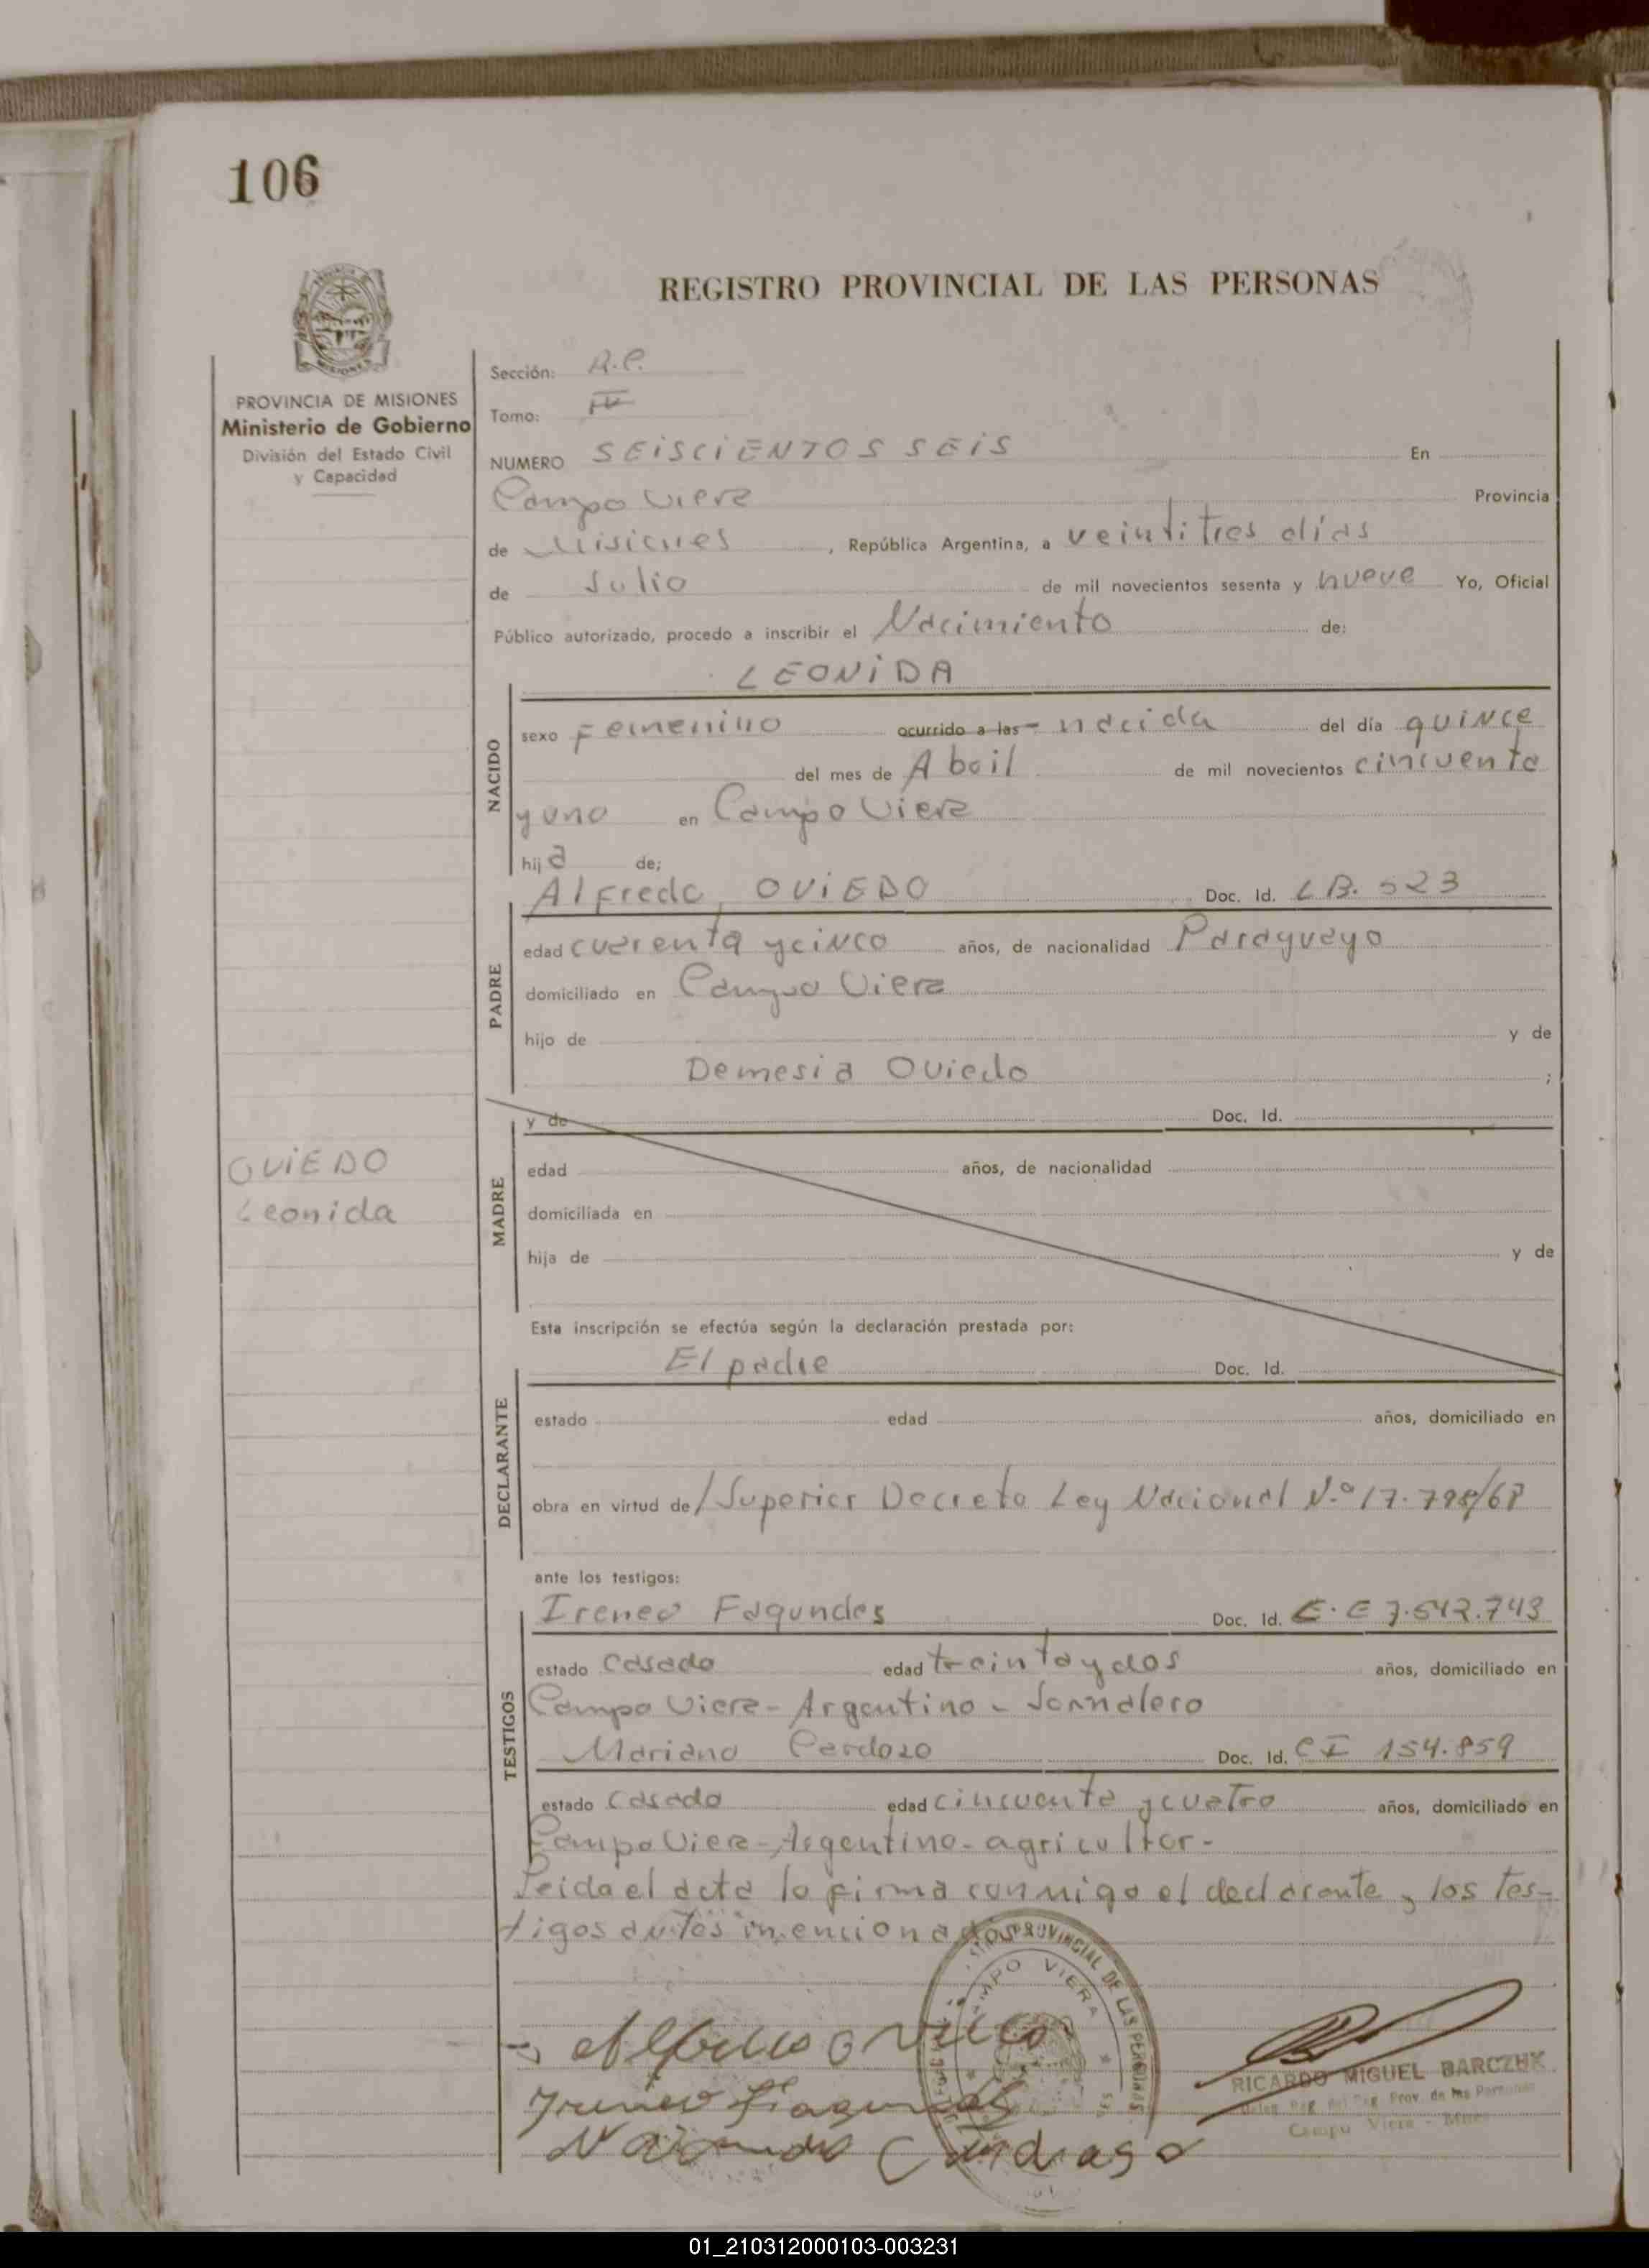 106
REGISTRO PROVINCIAL DE LAS PERSONAS
PROVINCIA DE MISIONES
Ministerio de Gobierno
División del Estado Civil
y Capacidad
Sección:
Tomo: IV
NUMERO SEISCIENTOS SEIS En
Campo Viera Provincia
de Misiones, República Argentina, a veintitres días
de Julio de mil novecientos sesenta y nueve Yo, Oficial
Público autorizado, procedo a inscribir el Nacimiento de:
LEONIDA
NACIDO
sexo Femenino ocurrido a las - nacida del día quince
del mes de Abril de mil novecientos cincuenta
y uno en Campo Viera
hija de;
PADRE
Alfredo, OVIEDO Doc. Id. 523
edad cuarenta y cinco años, de nacionalidad Paraguayo
domiciliado en Campo Viera
hijo de y de
Demesia Oviedo ;
MADRE
y de Doc. Id.
edad años, de nacionalidad
domiciliada en
hija de y de
OVIEDO
Leonida
Esta inscripción se efectúa según la declaración prestada por:
DECLARANTE
El padre Doc. Id.
estado edad años, domiciliado en
obra en virtud de / Superior Decreto Ley Nacional N.º
ante los testigos:
TESTIGOS
Ireneo Fagundes Doc. Id. 7.542.743
estado casado edad treinta y dos años, domiciliado en
Campo Viera - Argentino - Jornalero
Mariano Cardozo Doc. Id. CI 154.859
estado casado edad cincuenta y cuatro años, domiciliado en
Campo Viera - Argentino - agricultor -
Leida el acta la firma conmigo el declarante y los tes-
tigos antes mencionados
PROVINCIAL DE LAS PERSONAS
CAMPO VIERA
RICARDO MIGUEL BARCZUK
Deleg. Reg. del Reg. Prov. de las Personas
Campo Viera - Mnes.
01_210312000103-003231